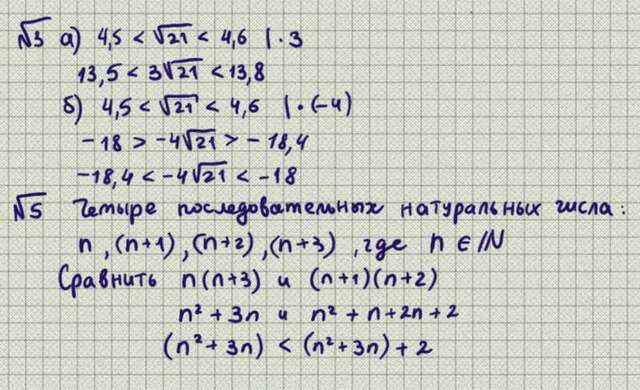 №3 а) 4,5 < √21 < 4,6 | · 3
13,5 < 3√21 < 13,8
б) 4,5 < √21 < 4,6 | · (-4)
-18 > -4√21 > -18,4
-18,4 < -4√21 < -18
№5 Четыре последовательных натуральных числа:
n, (n+1), (n+2), (n+3), где n ∈ ℕ
Сравнить n(n+3) и (n+1)(n+2)
n² + 3n и n² + n + 2n + 2
(n² + 3n) < (n² + 3n) + 2